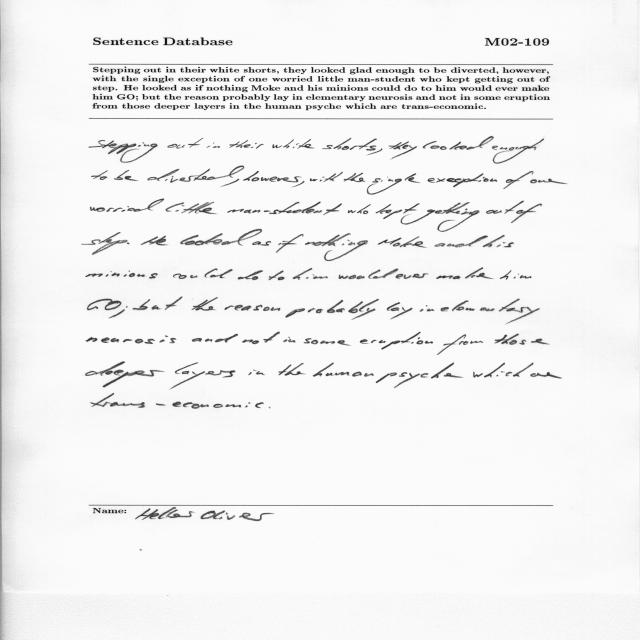 Sentence Database M02-109
Stepping out in their white shorts, they looked glad enough to be diverted, however,
with the single exception of one worried little man-student who kept getting out of
step. He looked as if nothing Moke and his minions could do to him would ever make
him GO; but the reason probably lay in elementary neurosis and not in some eruption
from those deeper layers in the human psyche which are trans-economic.
Stepping out in their white shorts, they looked enough
to be diverted, however, with the single exception of one
worried little man-student who kept getting out of
step. He looked as if nothing Moke and his
minions could do to him would ever make him
GO; but the reason probably lay in elementary
neurosis and not in some eruption from those
deeper layers in the human psyche which are
trans-economic.
Name: Oliver